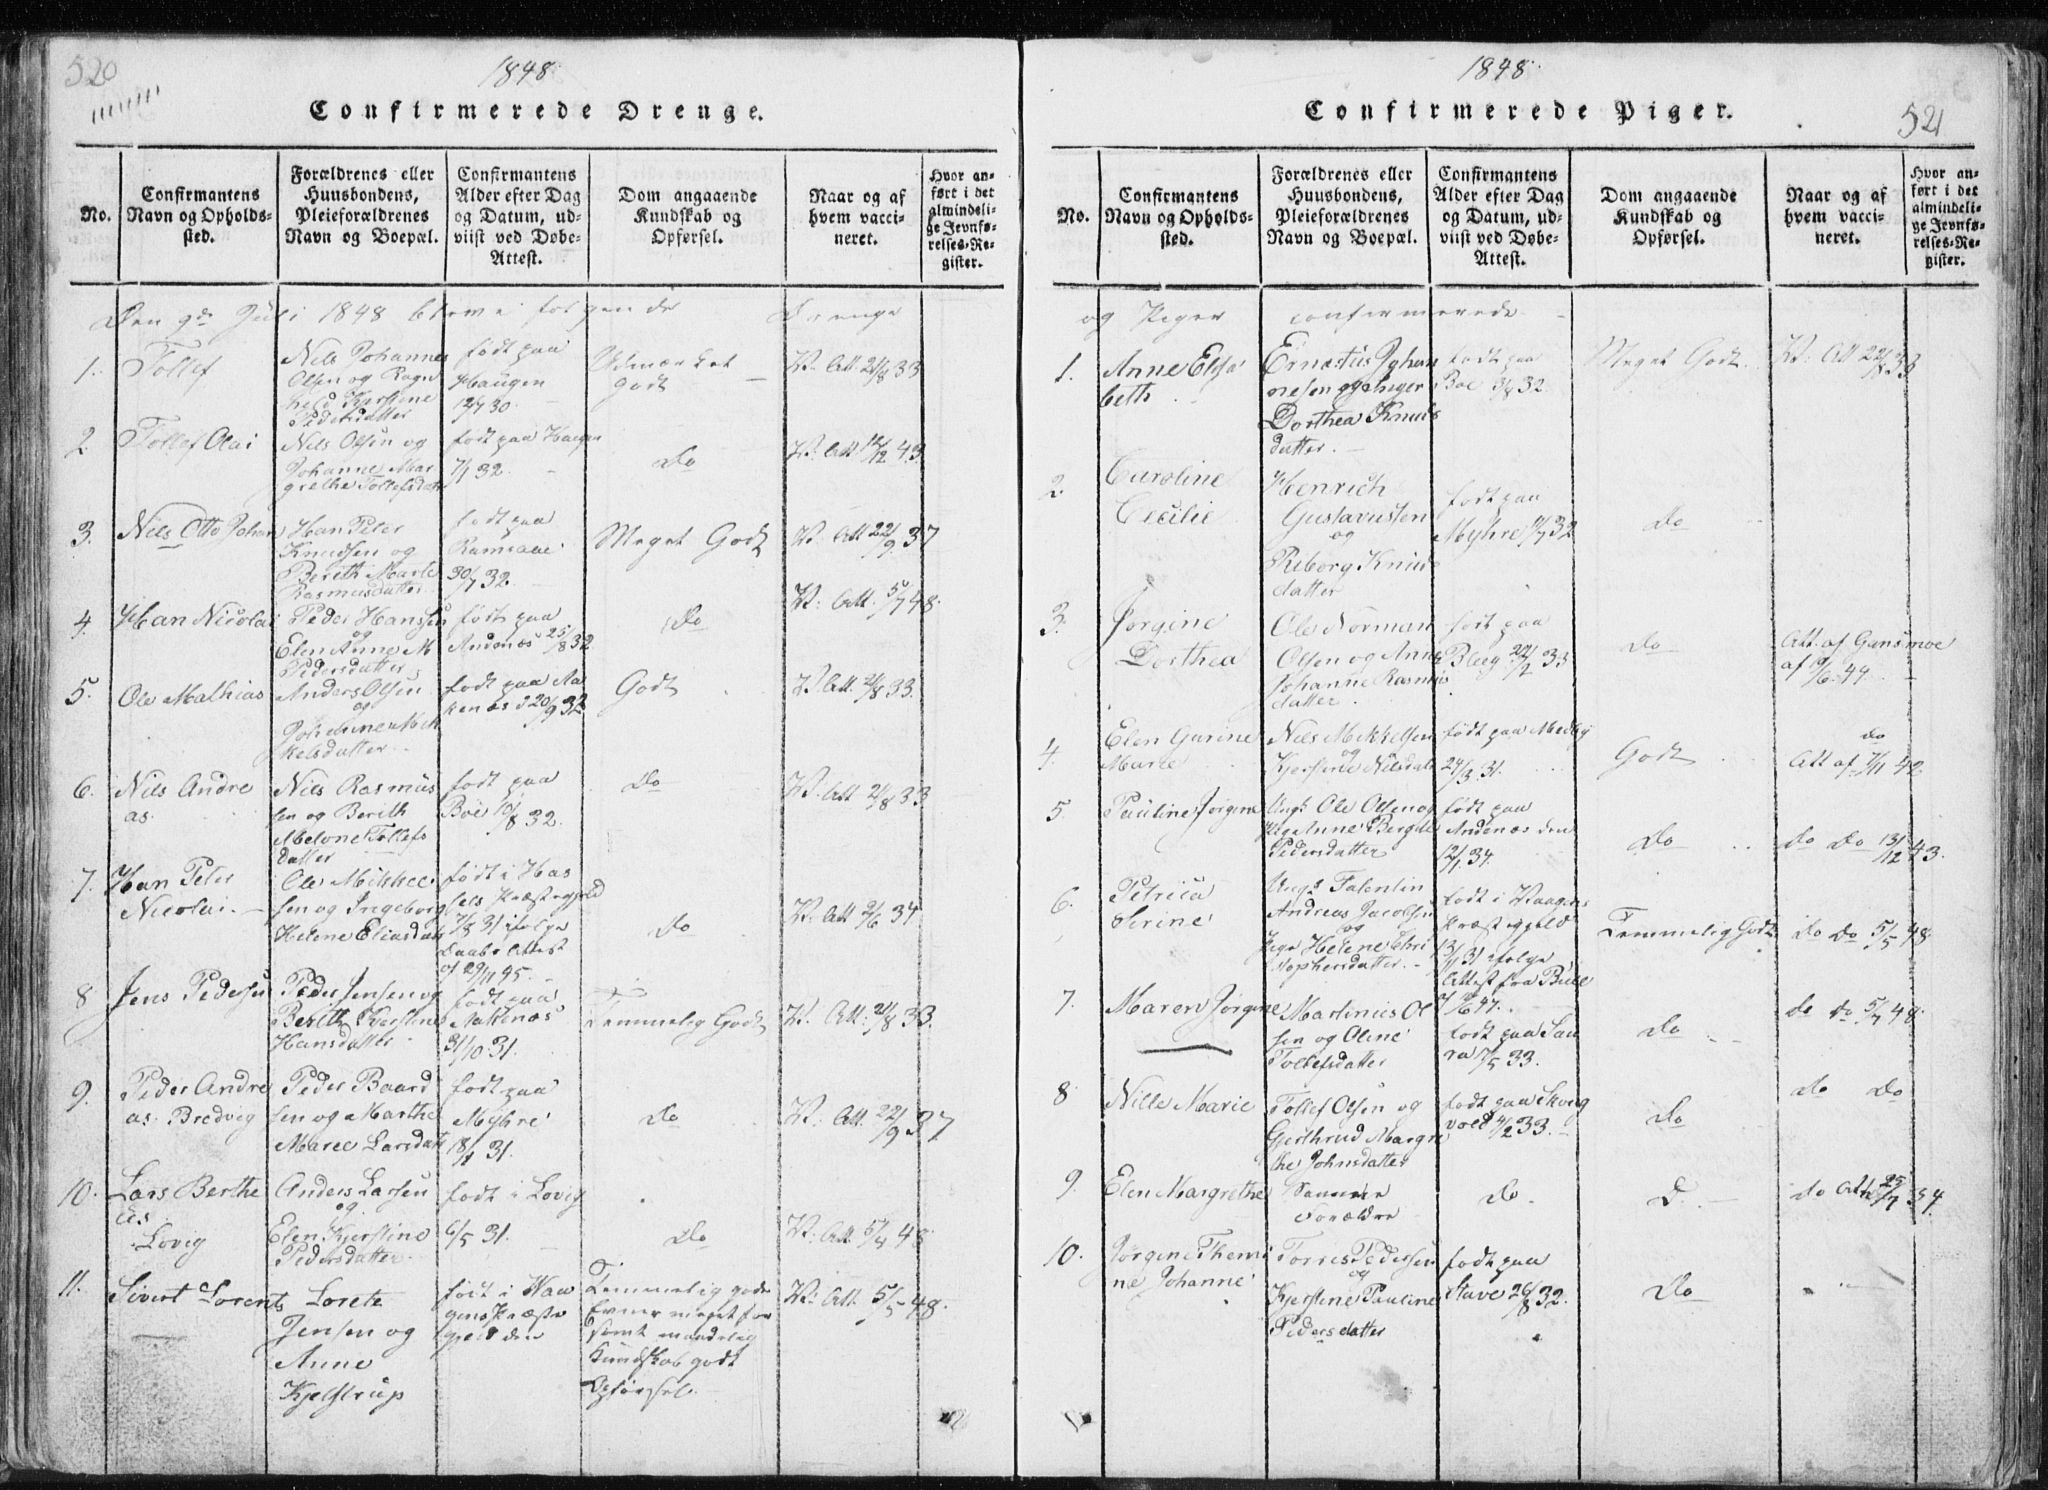 520
1848
Confirmerede Drenge.
No.
Confirmantens
Navn og Opholds-
sted.
Forældrenes eller
Huusbondens,
Pleieforældrenes
Navn og Boepæl.
Confirmantens
Alder efter Dag
og Datum, ud-
viist ved Døbe-
Attest.
Dom angaaende
Kundskab og
Opførsel.
Naar og af
hvem vacci-
neret.
Hvor an-
ført i det
almindeli-
ge Jevnfø-
relses-Re-
gister.
Den 9de Juli 1848 bleve følgende Drenge
1. Tollef
Nils Johannes
Olsen og Ragn
hild Kjerstine
Pedersdatter
født paa
Haugen
12/7 30.
Udmærket
Godt
V. Att. 21/8 33
2. Tollef Olai
Nils Olsen og
Johanne Mar
grethe Tollefsdatr
født paa Haugen
7/1 32.
Do
V. Att 12/12 43.
3. Nils Otto Johan
Han Peter
Knudsen og
Bereth Marte
Rasmusdatter
født paa
Ramsaae
30/7 32.
Meget Godt
V. Att 22/9 37
4. Han Nicolai
Peder Hansen
og
Elen Anne M
Pedersdatter
født paa
Andenæs 25/8 32
Do
V. Att. 5/7 48.
5. Ole Mathias
Anders Olsen
og
Johanne Mik
kelsdatter
født paa Aa
kenæs d 20/9 32
Godt
V. Att. 21/8 33.
6. Nils Andre
as.
Nils Rasmus
sen og Bereth
Melone Tollefs
datter
født paa
Böe 11/8 32.
Do
V. Att 21/8 33
7. Han Peter
Nicolai.
Ole Mikkel
sen og Ingeborg
Helene Eliasdatr
født i Has
sels Præstegjeld
7/8 31 ifølge
Daabs Attest
af 29/11 45.
Do
V. Att 2/6 34
8 Jens Pedersen
Peder Jensen og
Bereth Kjerstine
Hansdatter
født paa
Aakenæs
31/10 31.
Temmelig Godt
V. Att: 21/8 33.
9. Peder Andre
as. Bredveg
Peder Baard
sen og Marthe
Maree Larsdatr
født paa
Myhre
18/1 31.
Do
V. Att. 22/9 37
10. Lars Berthe
us.
Lovig
Anders Larsen
og
Elen Kjerstine
Pedersdatter.
født i Lovig
6/5 31.
Do
V. Att. 5/7 48
11. Sivert Lorents
Lorets
Jensen og
Anne
Kjelstrup
født i Waa
gens Præste
gjeld den
Temmelig gode
Evner meget for
sømt maadelig
Kundskab godt
Opførsel.
V. Att. 5/5 48.
1848.
521
Confirmerede Piger.
No.
Confirmantens
Navn og Opholds-
sted.
Forældrenes eller
Huusbondens,
Pleieforældrenes
Navn og Boepæl.
Confirmantens
Alder efter Dag
og Datum, ud-
viist ved Døbe-
Attest.
Dom angaaende
Kundskab og
Opførsel.
Naar og af
hvem vacci-
neret.
Hvor an-
ført i det
almindeli-
ge Jevnfø-
relses-Re-
gister.
og Piger confirmerede
1. Anne Elisa
beth
Ernestus Johan
nesen og Inger
Dorthea Knuds
datter.
født paa
Böe 3/8 32
Meget Godt
2. Caroline
Cecilie
Henrich
Gustavussen
og
Reborg Knuds
datter
født paa
Myhre 32
Do
3. Jørgine
Dorthea
Ole Norman
Olsen og Anne
Johanne Rasmus
datter
født paa
Bleeg 22/2 33
Do
Att. af Gunsmoe
af 44.
4. Elen Gurine
Marie
Nils Mikkelsen
og
Kjerstine Nilsdatr
født paa Medby
24/3 31.
Godt
do
Att af 7/11 42
5. Pauline Jørgine
Ungk Ole Olsen og
Pige Anne Bergitte
Pedersdatter
født paa
Andenæs den
12/1 34.
Do
do do 131/12 43.
6. Petrica
Serine
Ungk Falentin
Andreas Jacobsen
og
Pige Helene Chri
stophersdatter.
født i Waagens
Præstegjeld
31 ifølge
Attest fra
47.
Temmelig Godt
do do 5/5 48
7. Maren Jørgine
Martinus Ol
sen og Oline
Tollefsdatter
født paa Sau
ra 17/5 33.
Do
do do 5/7 48.
8 Nille Marie
Tollef Olsen og
Gjerthrud Margre
the Johnsdatter
født paa Skog
vold 4/2 33.
Do
do do
9. Elen Margrethe
Samme
Forældre
do
D.
do Att. 25/7 34.
10. Jørgine Themi
ne Johanne
Torres Pedersen
og
Kjerstine Pauline
Pedersdatter
født paa
Stave 26/8 32.
Do